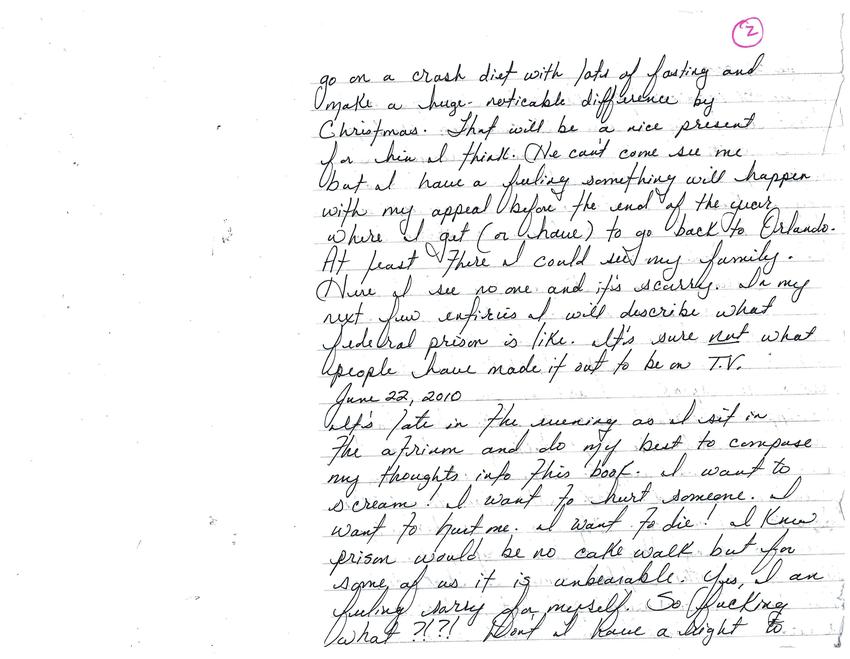 2
go on a crash diet with lots of fasting and
make a huge noticable difference by
Christmas. That will be a nice present
for him I think. He can't come see me
but I have a feeling something will happen
with my appeal before the end of the year
where I get (or have) to go back to Orlando.
At least there I could see my family.
Here I see no one and it's scarry. In my
next few entiries I will describe what
federal prison is like. It's sure not what
people have made it out to be on T.V.
June 22, 2010
It's late in the evening as I sit in
the atrium and do my best to compose
my thoughts into this book. I want to
scream! I want to hurt someone. I
want to hurt me. I want to die! I knew
prison would be no cake walk but for
some of us it is unbearable. Yes, I am
feeling sorry for myself. So fucking
what?!?! Don't I have a right to